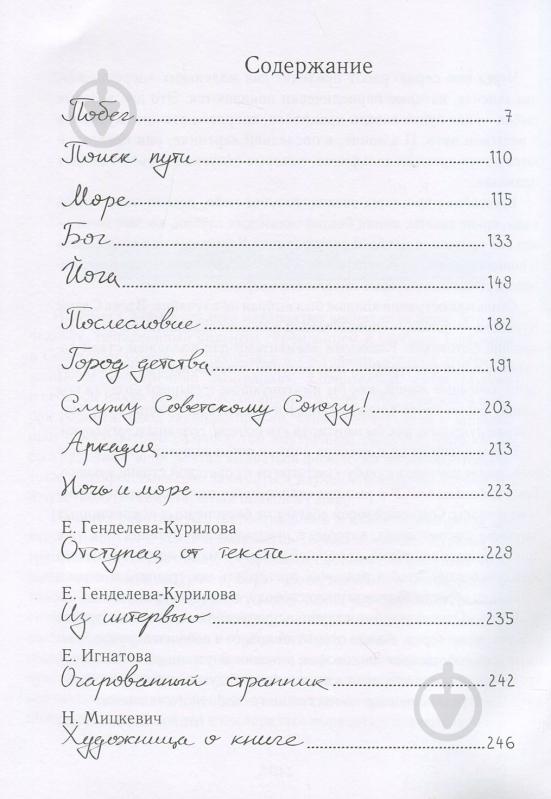 Содержание
Побег 7
Поиск пути 110
Море 115
Бог 133
Йога 149
Послесловие 182
Город детства 191
Служу Советскому Союзу! 203
Аркадия 213
Ночь и море 223
Е. Генделева-Курилова
Отступая от текста 229
Е. Генделева-Курилова
Из интервью 235
Е. Игнатова
Очарованный странник 242
Н. Мицкевич
Художница о книге 246